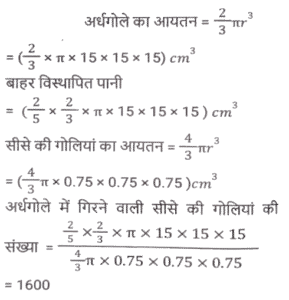 अर्धगोले का आयतन = 2/3 πr³
= (2/3 × π × 15 × 15 × 15) cm³
बाहर विस्थापित पानी
= (2/5 × 2/3 × π × 15 × 15 × 15 ) cm³
सीसे की गोलियां का आयतन = 4/3 πr³
= (4/3 π × 0.75 × 0.75 × 0.75 )cm³
अर्धगोले में गिरने वाली सीसे की गोलियां की
संख्या = (2/5 × 2/3 × π × 15 × 15 × 15)/(4/3 π × 0.75 × 0.75 × 0.75)
= 1600